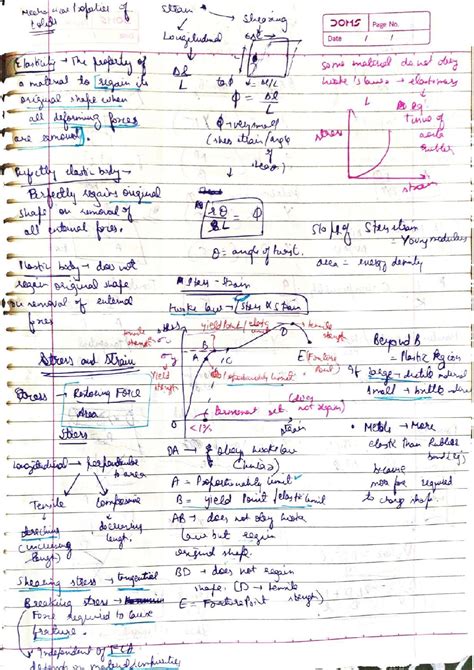 Mechanical Properties of
Solids
Elasticity → The property of
a material to regain its
original shape when
all deforming forces
are removed.
Perfectly elastic body →
Perfectly regains original
shape on removal of
all external forces.
Plastic body → does not
regain original shape
on removal of external
forces
Stress and Strain
Stress → Restoring Force
Area
Stress
Longitudinal → perpendicular
to area
Tensile
Compressive
Shearing stress → tangential
Breaking stress →
Force required to cause
fracture.
* Independent of
depends on material
Strain
Shearing
Longitudinal
Δl
L
φ = Δl
L
φ → very small
(shear strain/angle
of
shear)
rθ = φ
L
θ = angle of twist.
Stress - Strain
Hooke law → Stress ∝ Strain
stress
Yield Point / elastic
limit
tensile
strength
Yield
strength
A
B
C
D
E
Fracture
Point
Permanent set
<1%
strain
OA → obey Hooke law
(linear)
A = Proportionality limit
B = Yield Point / elastic limit
AB → does not obey Hooke
law but regain
original shape.
BD → does not regain
shape. (D → tensile
strength)
E = Fracture Point
DOMS
Page No.
Date / /
some material do not obey
Hooke's law → elastomers
stress
strain
Slope of Stress strain
= Young modulus
area = energy density
Beyond B
= Plastic Region
If large → ductile material
small → brittle
• Metals → More
elastic than Rubber
because
more force required
to change shape.